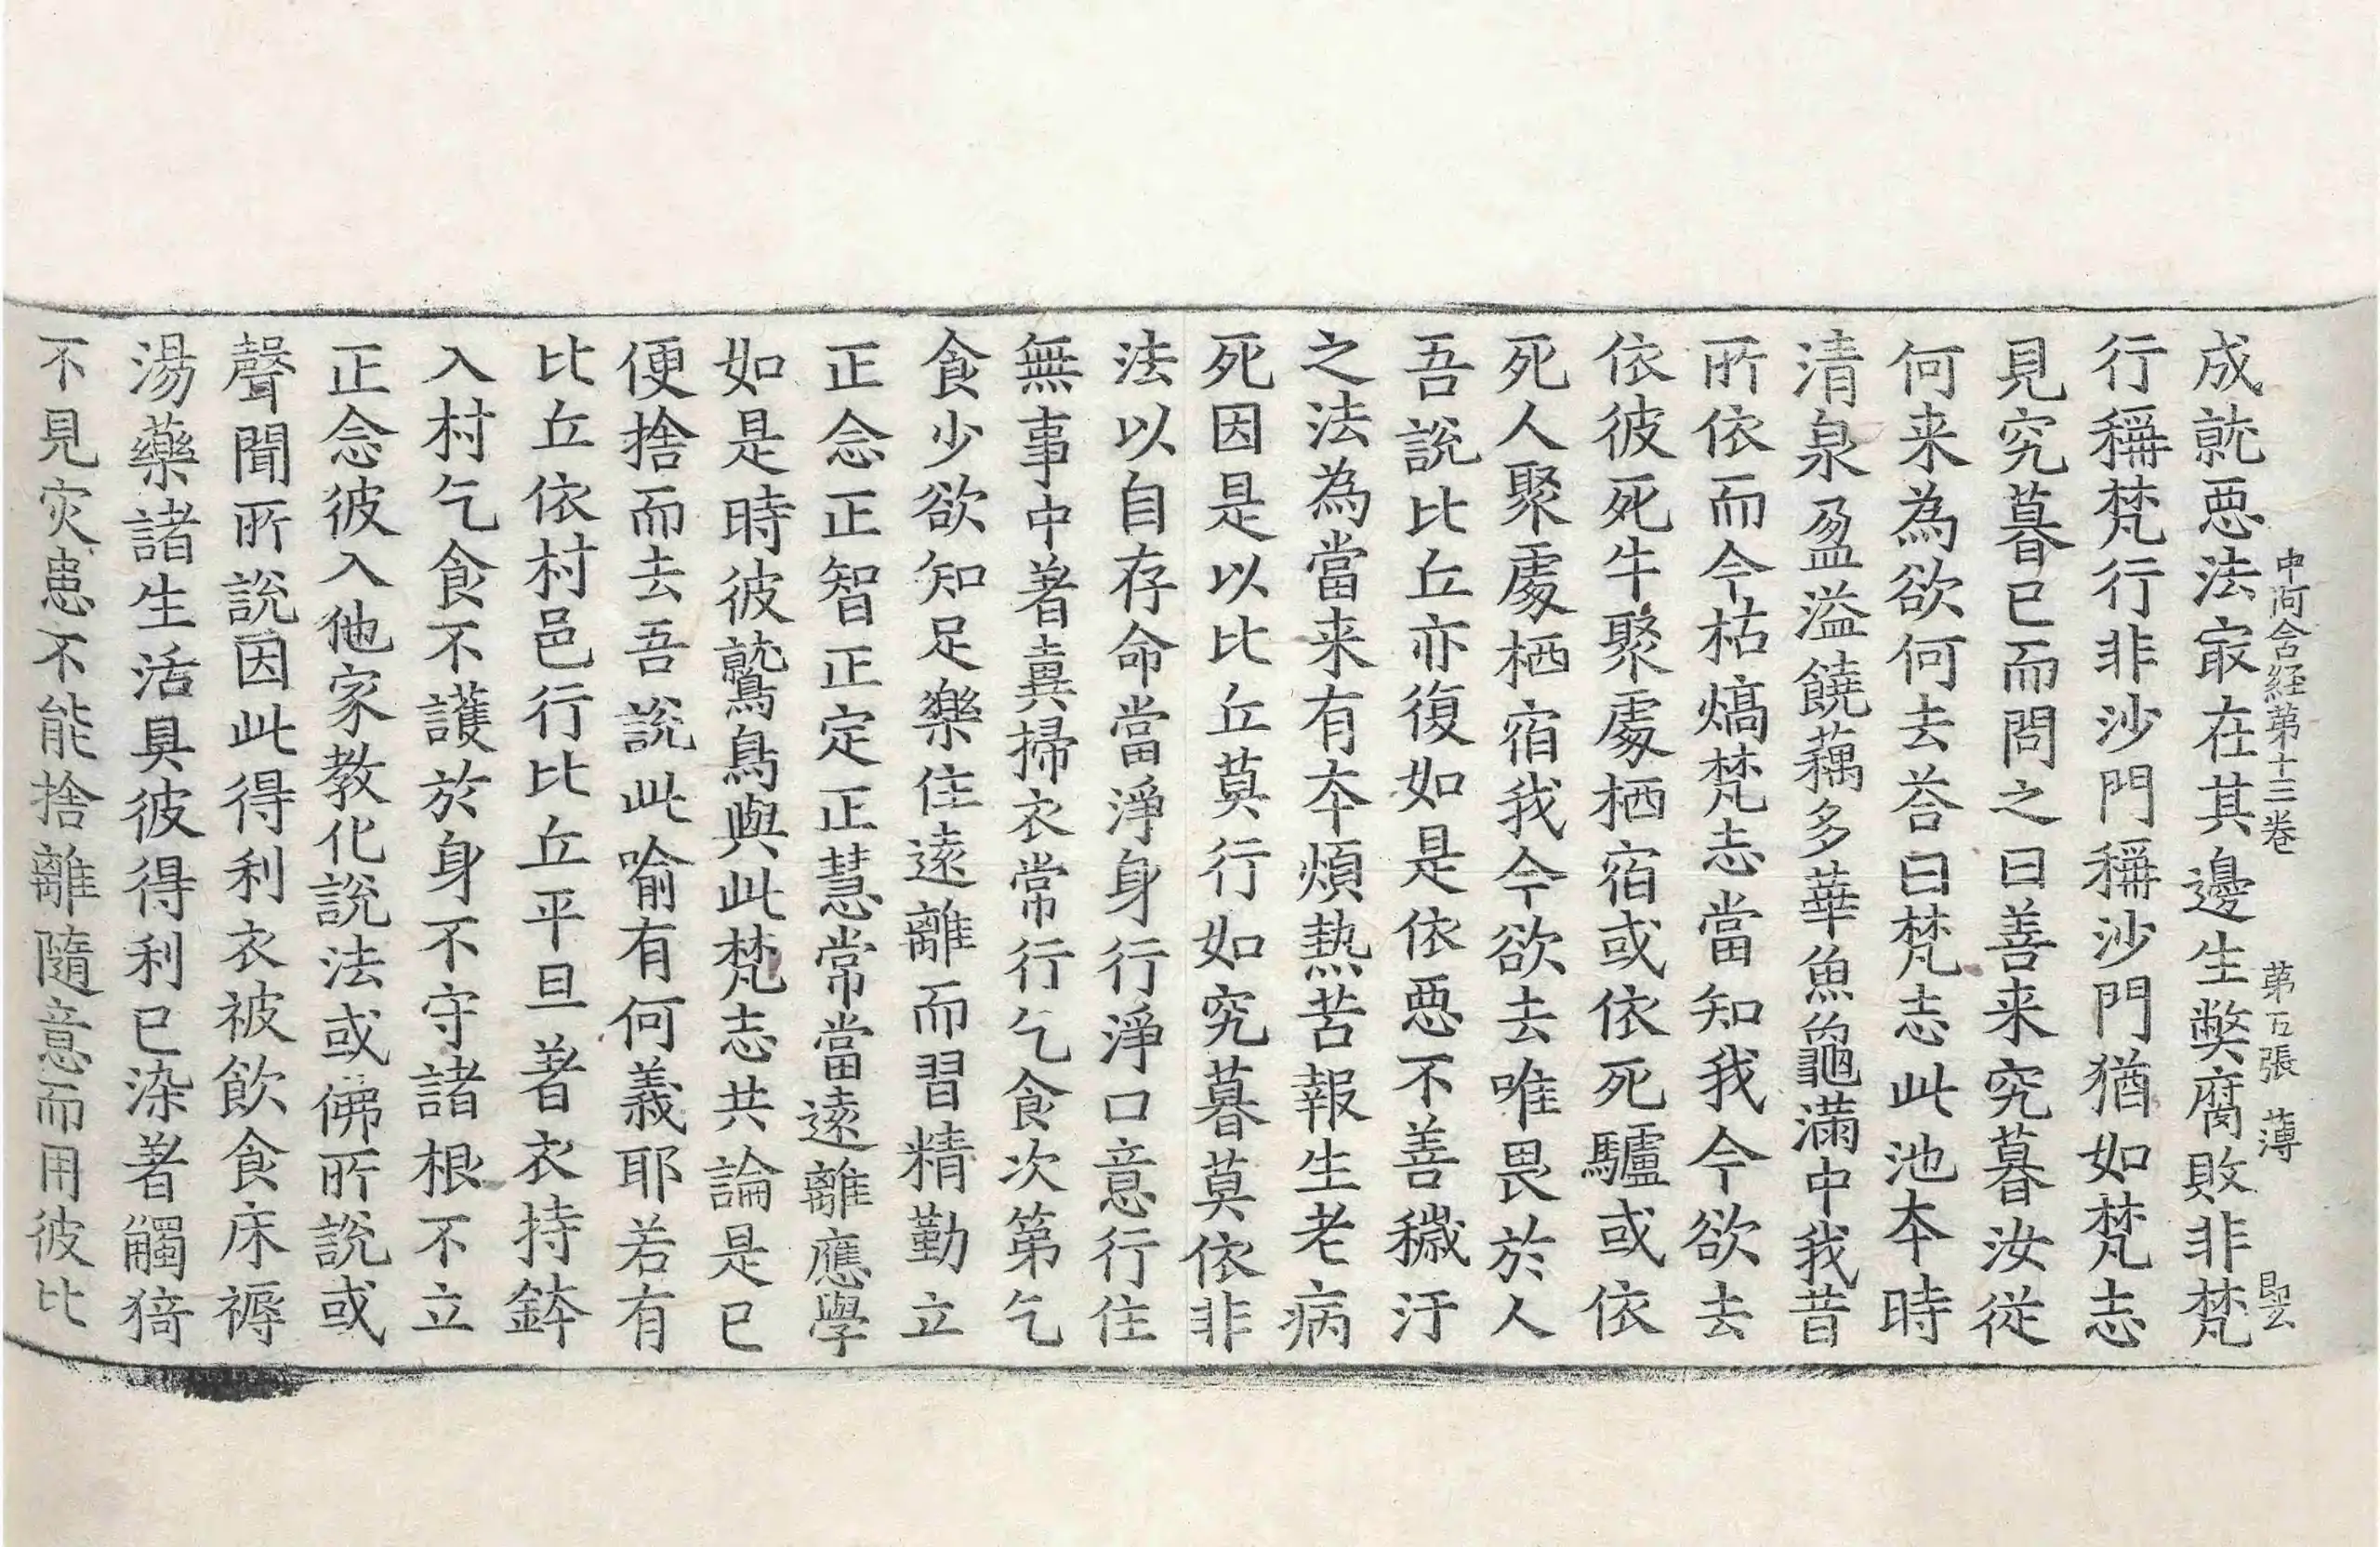 中阿含経第十三卷 第五張 薄
成就惡法冣在其邊生弊腐敗非梵
行稱梵行非沙門稱沙門猶如梵志
見究暮已而問之曰善来究暮汝従
何来為欲何去荅曰梵志此池本時
清泉盈溢饒藕多華魚龜滿中我昔
所依而今枯熇梵志當知我今欲去
依彼死牛聚處栖宿或依死驢或依
死人聚處栖宿我今欲去唯畏於人
吾説比丘亦復如是依惡不善穢汙
之法為當来有本煩熱苦報生老病
死因是以比丘莫行如究暮莫依非
法以自存命當淨身行淨口意行住
無事中著糞掃衣常行乞食次第乞
食少欲知足樂住遠離而習精勤立
正念正智正定正慧常當遠離應學
如是時彼鷲鳥與此梵志共論是已
便捨而去吾説此喻有何義耶若有
比丘依村邑行比丘平旦著衣持鉢
入村乞食不護於身不守諸根不立
正念彼入他家教化説法或佛所説或
聲聞所説因此得利衣被飲食床褥
湯藥諸生活具彼得利已染著觸猗
不見灾患不能捨離隨意而用彼比